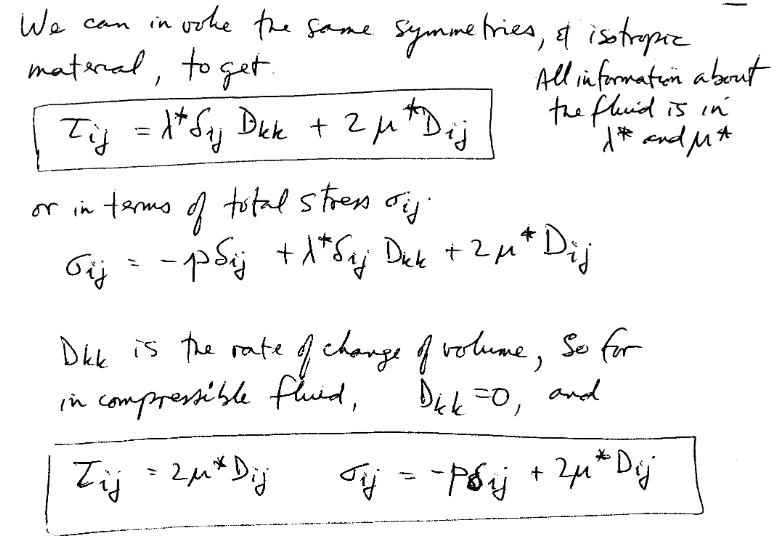 We can invoke the same symmetries, & isotropic
material, to get.
All information about
the fluid is in
λ* and μ*
τij = λ*δij Dkk + 2μ*Dij
or in terms of total stress σij.
σij = -pδij + λ*δij Dkk + 2μ*Dij
Dkk is the rate of change of volume, So for
incompressible fluid, Dkk=0, and
τij = 2μ*Dij σij = -pδij + 2μ*Dij